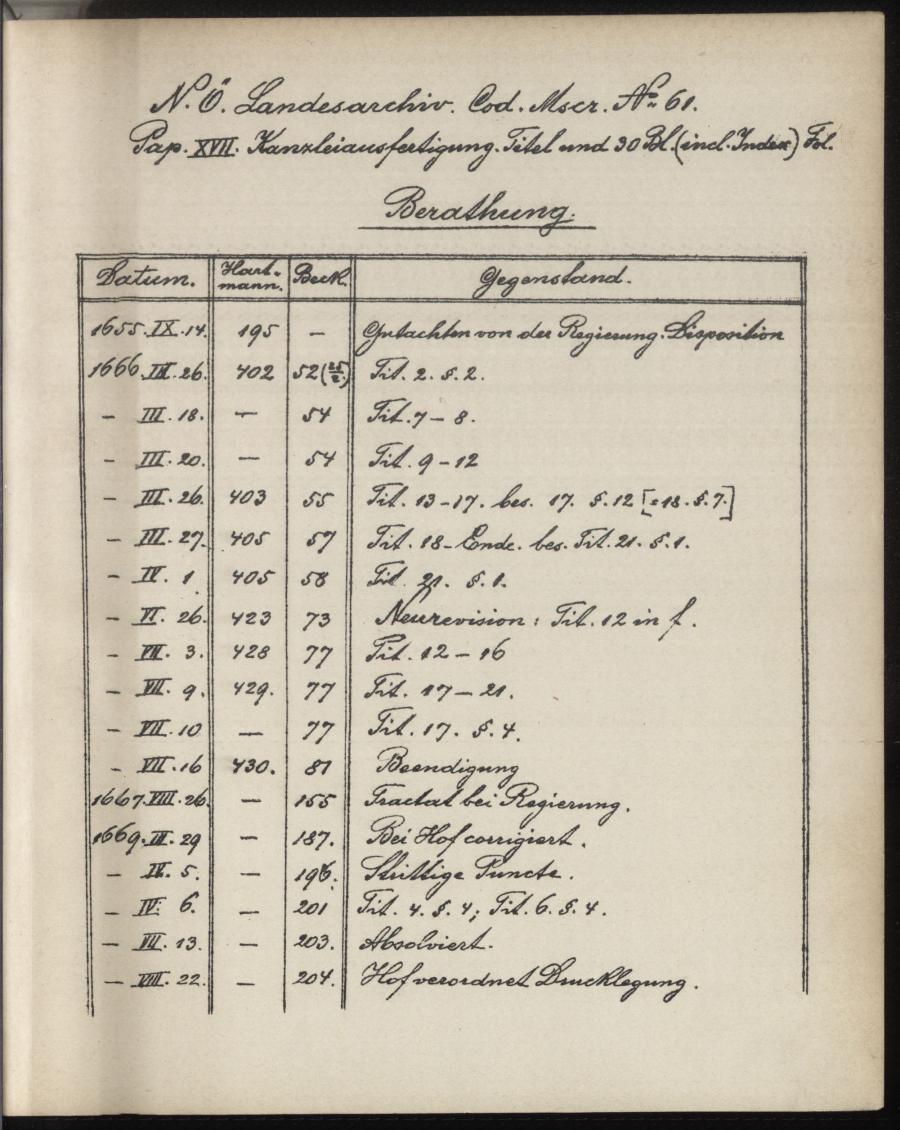 N. Ö. Landesarchiv. Cod. Mscr. No 61.
Pap. XVII. Kanzleiausfertigung. Titel und 30 Bl. (incl. Index) Fol.
Berathung.
Datum. Hart-mann. Beck. Gegenstand.
1655. IX. 14. 195 — Gutachten von der Regierung. Disposition
1666. III. 26. 402 52 (25/2) Tit. 2. §. 2.
— III. 18. — 54 Tit. 7 — 8.
— III. 20. — 54 Tit. 9 — 12
— III. 26. 403 55 Tit. 13 — 17. bes. 17. §. 12 [= 18. §. 7.]
— III. 27. 405 57 Tit. 18 — Ende. bes. Tit. 21. §. 1.
— IV. 1. 405 58 Tit. 21. §. 1.
— VI. 26. 423 73 Neurevision: Tit. 12 in f.
— VII. 3. 428 77 Tit. 12 — 16
— VII. 9. 429. 77 Tit. 17 — 21.
— VII. 10 — 77 Tit. 17. §. 4.
— VII. 16 430. 81 Beendigung
1667. VIII. 26. — 155 Tractat bei Regierung.
1669. III. 29 — 187. Bei Hof corrigiert.
— IV. 5. — 196. Strittige Puncte.
— IV. 6. — 201 Tit. 4. §. 4; Tit. 6. §. 4.
— VII. 13. — 203. Absolviert.
— VIII. 22. — 204. Hof verordnet Drucklegung.